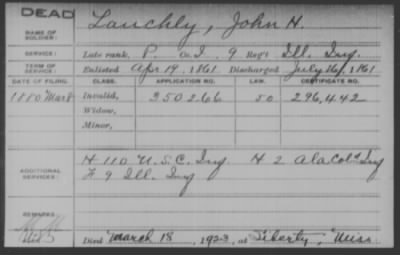 DEAD
NAME OF SOLDIER: Lauchly, John H.
SERVICE: Late rank, P. Co. I, 9 Reg't Ill. Inf.
TERM OF SERVICE: Enlisted Apr 19, 1861 Discharged July 26, 1861
DATE OF FILING. CLASS. APPLICATION NO. LAW. CERTIFICATE NO.
1880 Mar 8 Invalid, 350266 50 296,442
Widow,
Minor,
ADDITIONAL SERVICES: H 110 U.S.C. Inf H 2 Ala Col'd Inf
F 9 Ill. Inf
REMARKS:
Died March 18, 1923, at Liberty, Miss.